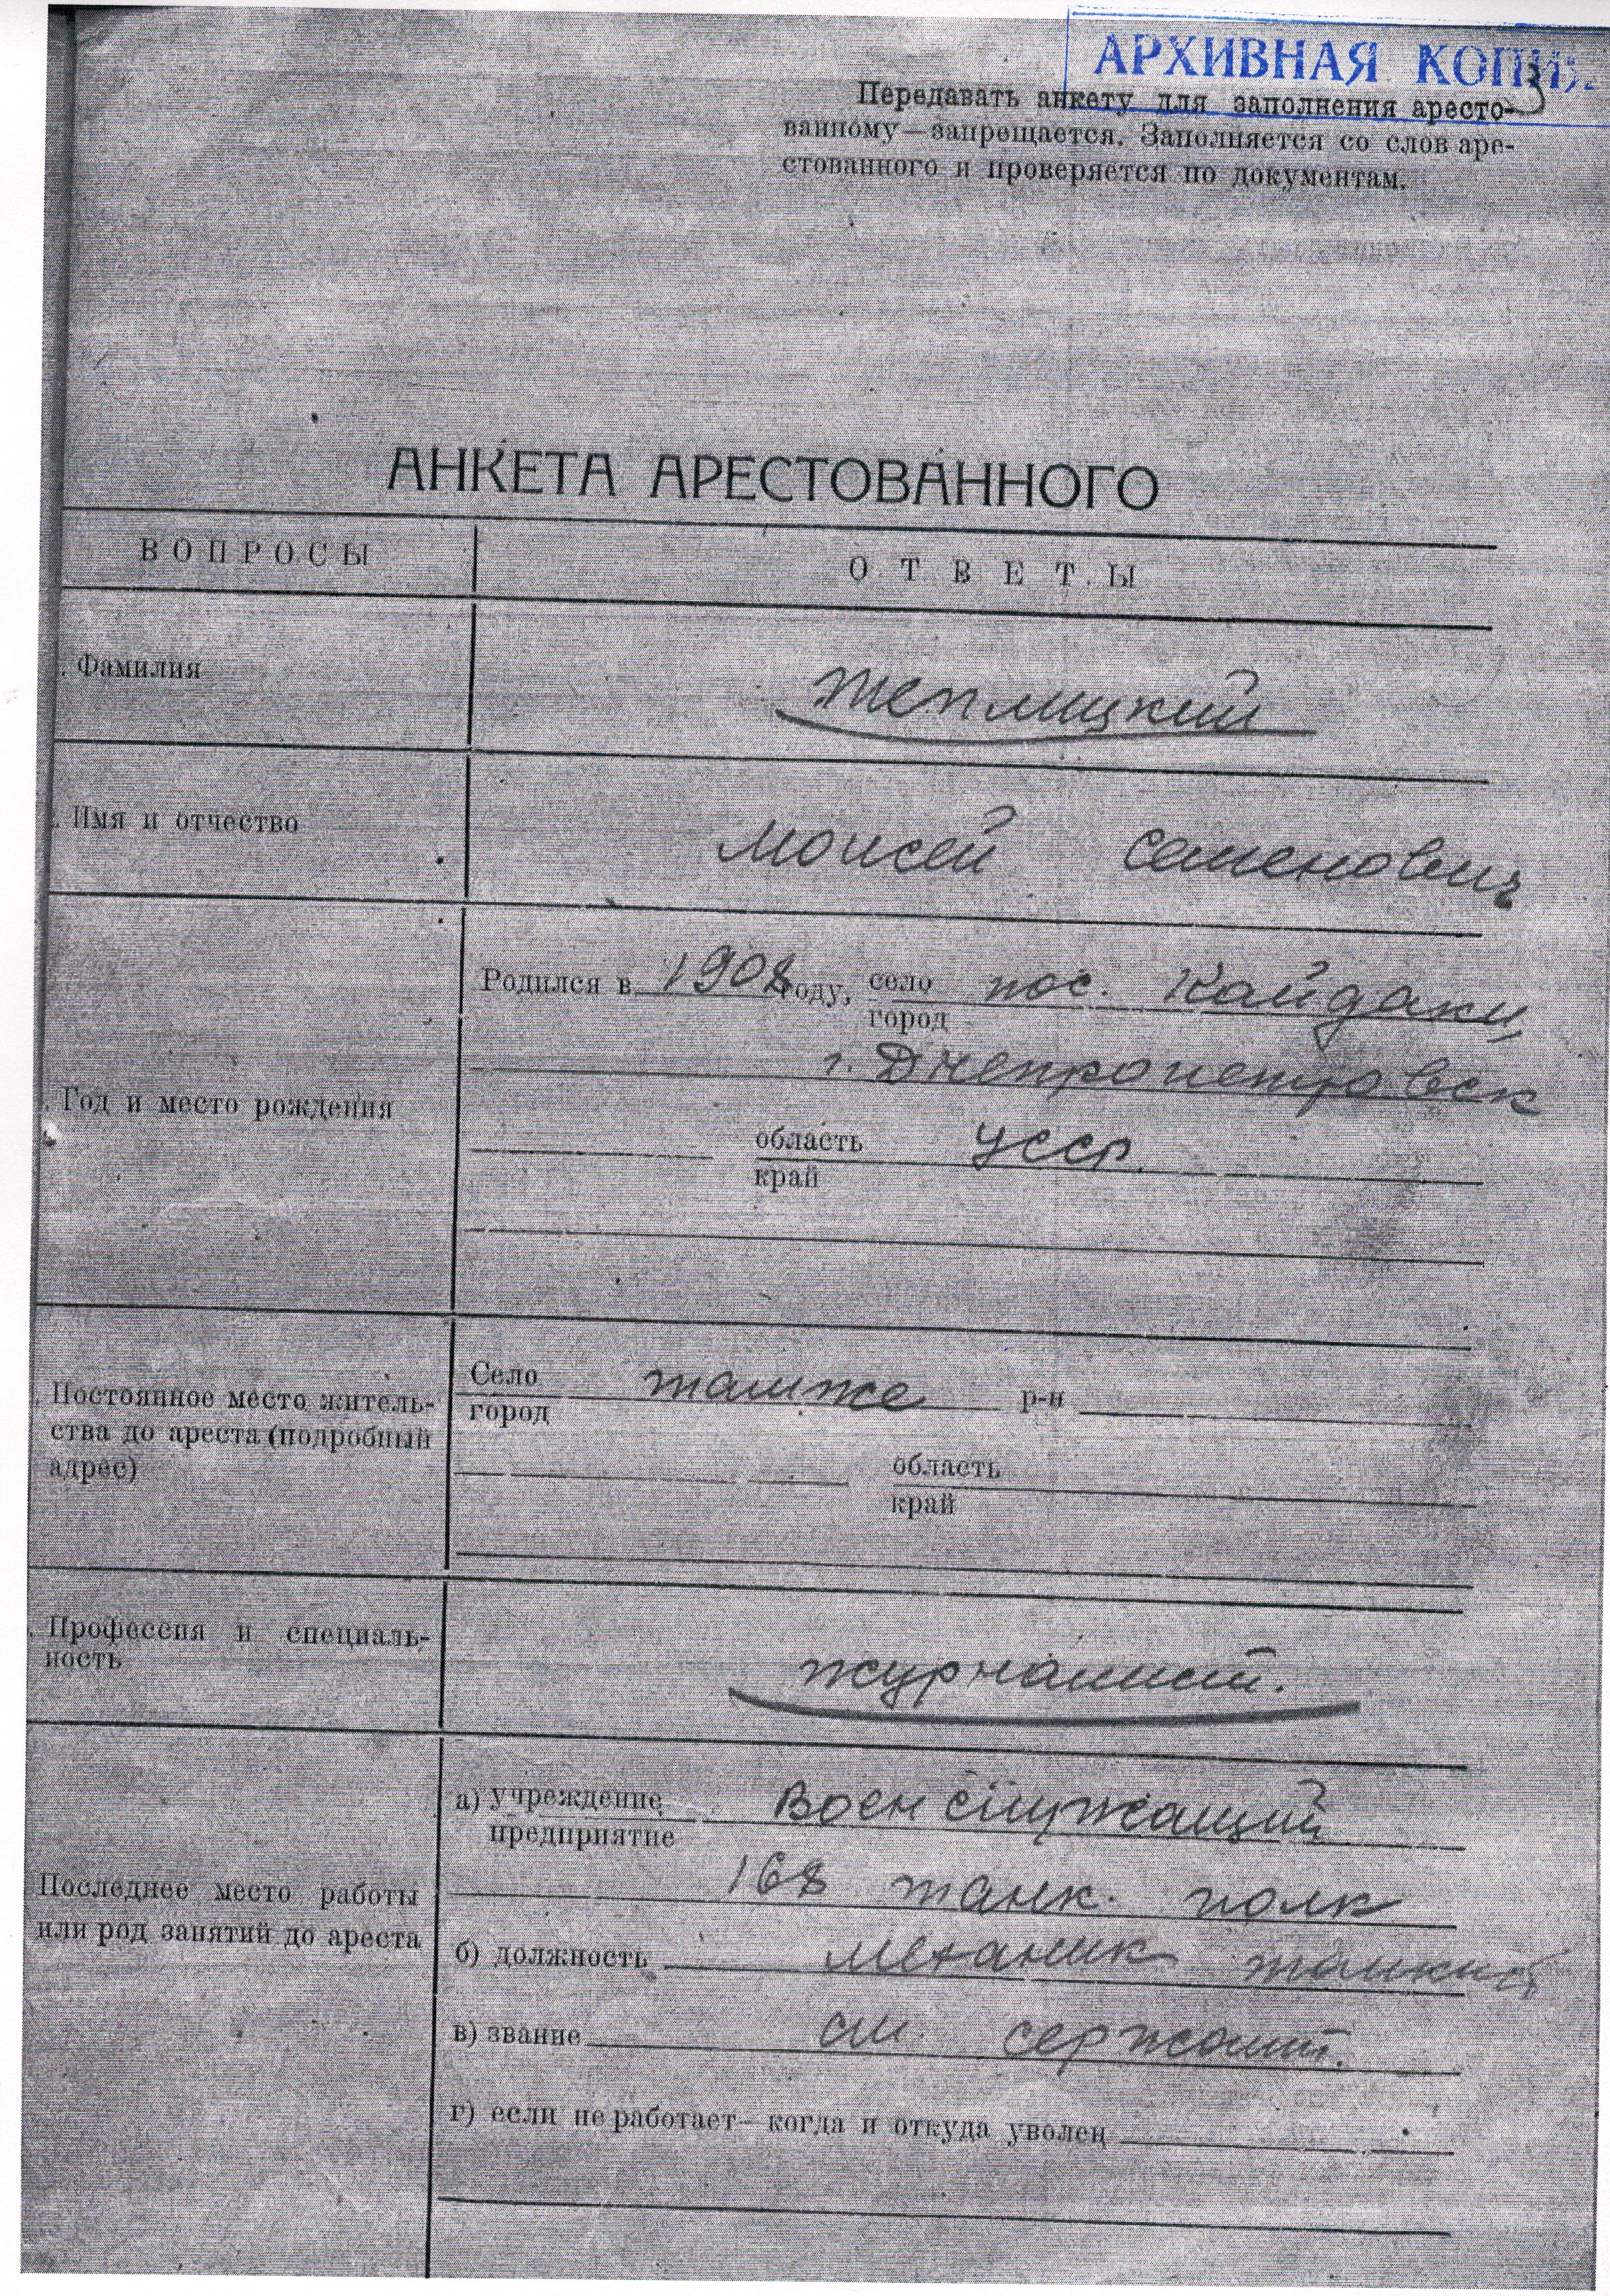 АРХИВНАЯ КОПИЯ
3
Передавать анкету для заполнения аресто-
ванному—запрещается. Заполняется со слов аре-
стованного и проверяется по документам.
АНКЕТА АРЕСТОВАННОГО
ВОПРОСЫ
ОТВЕТЫ
Фамилия
Теплицкий
Имя и отчество
Моисей Семенович
Родился в 1908 году, село пос. Кайдаки,
город
г. Днепропетровск
Год и место рождения
область УССР.
край
Село также р-н
город
Постоянное место житель-
ства до ареста (подробный
адрес)
область
край
Профессия и специаль-
ность
журналист.
а) учреждение Военслужащий
предприятие
168 танк. полк
Последнее место работы
или род занятий до ареста
б) должность механик
в) звание ст. сержант.
г) если не работает—когда и откуда уволен